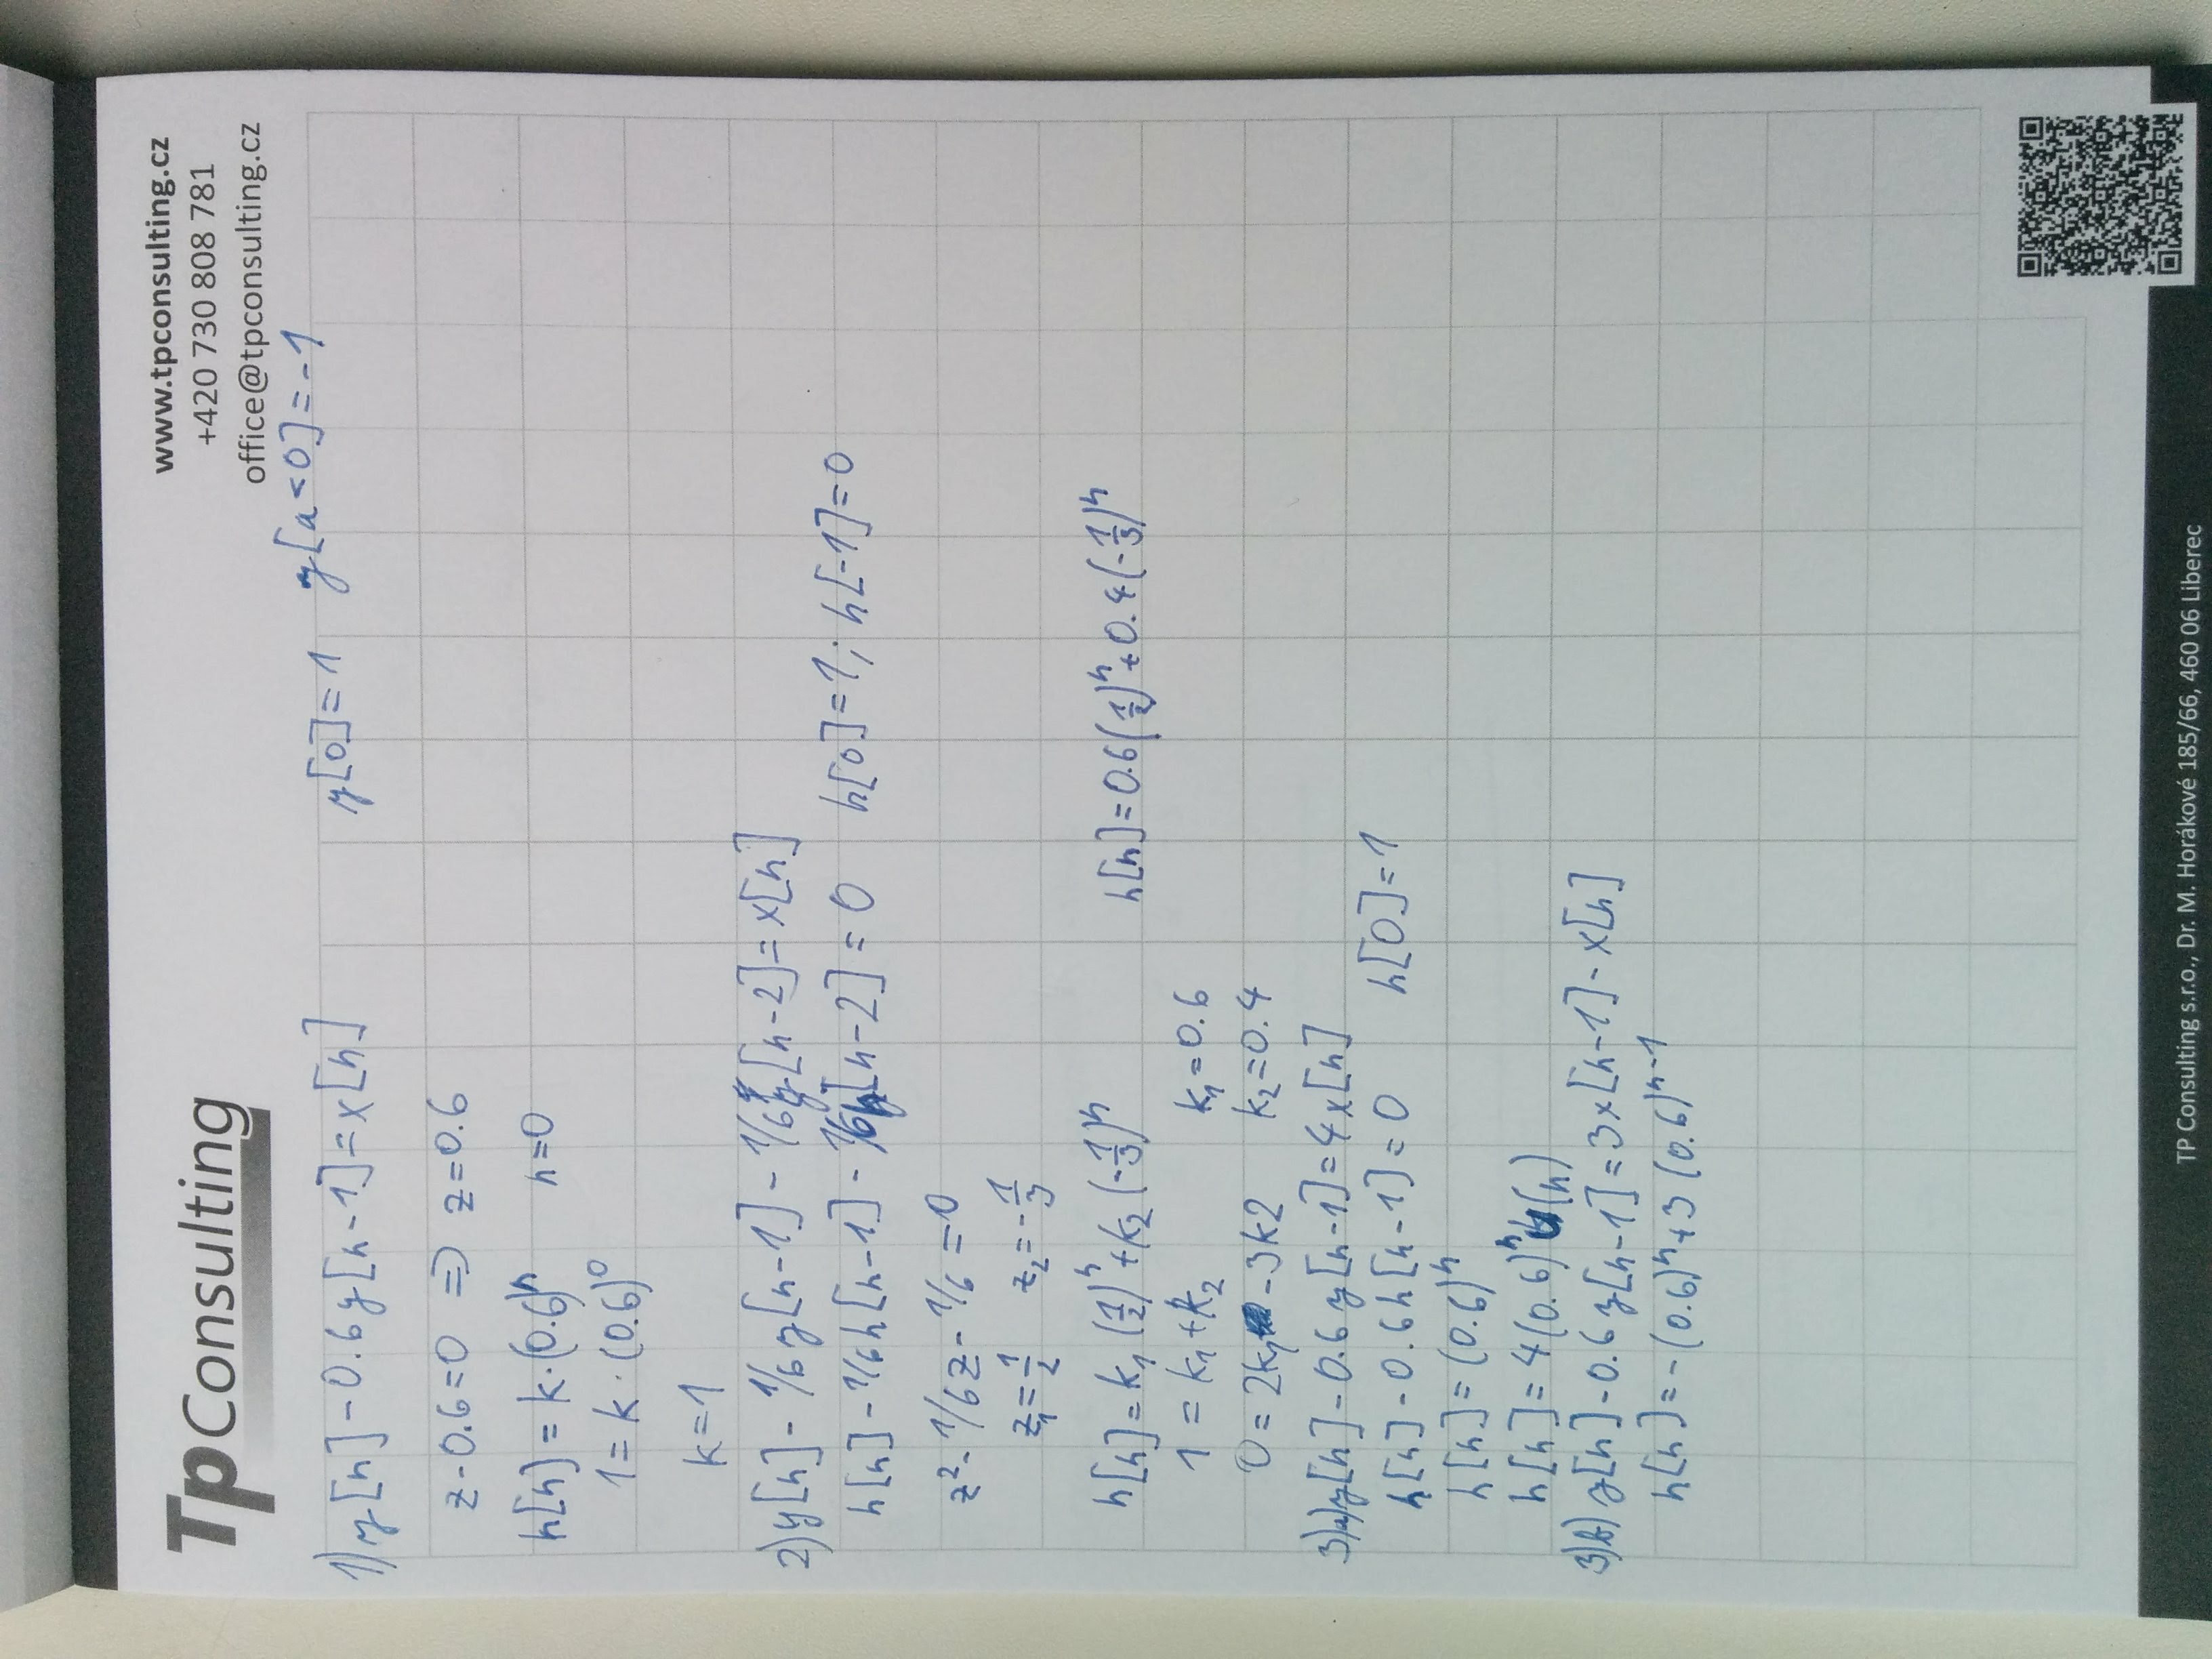 TpConsulting
www.tpconsulting.cz
+420 730 808 781
office@tpconsulting.cz
1) y[n]-0.6y[n-1]=x[n] y[0]=1 y[n<0]=-1
z-0.6=0 => z=0.6
h[n]=k·(0.6)ⁿ n=0
1=k·(0.6)⁰
k=1
2) y[n]-1/6y[n-1]-1/6y[n-2]=x[n]
h[n]-1/6h[n-1]-1/6h[n-2]=0 h[0]=1; h[-1]=0
z²-1/6z-1/6=0
z₁=1/2 z₂=-1/3
h[n]=k₁(1/2)ⁿ+k₂(-1/3)ⁿ h[n]=0.6(1/2)ⁿ+0.4(-1/3)ⁿ
1=k₁+k₂ k₁=0.6
0=2k₁-3k2 k₂=0.4
3)a) y[n]-0.6y[n-1]=4x[n]
h[n]-0.6h[n-1]=0 h[0]=1
h[n]=(0.6)ⁿ
h[n]=4(0.6)ⁿu(n)
3)b) y[n]-0.6y[n-1]=3x[n-1]-x[n]
h[n]=-(0.6)ⁿ+3(0.6)ⁿ⁻¹
TP Consulting s.r.o., Dr. M. Horákové 185/66, 460 06 Liberec